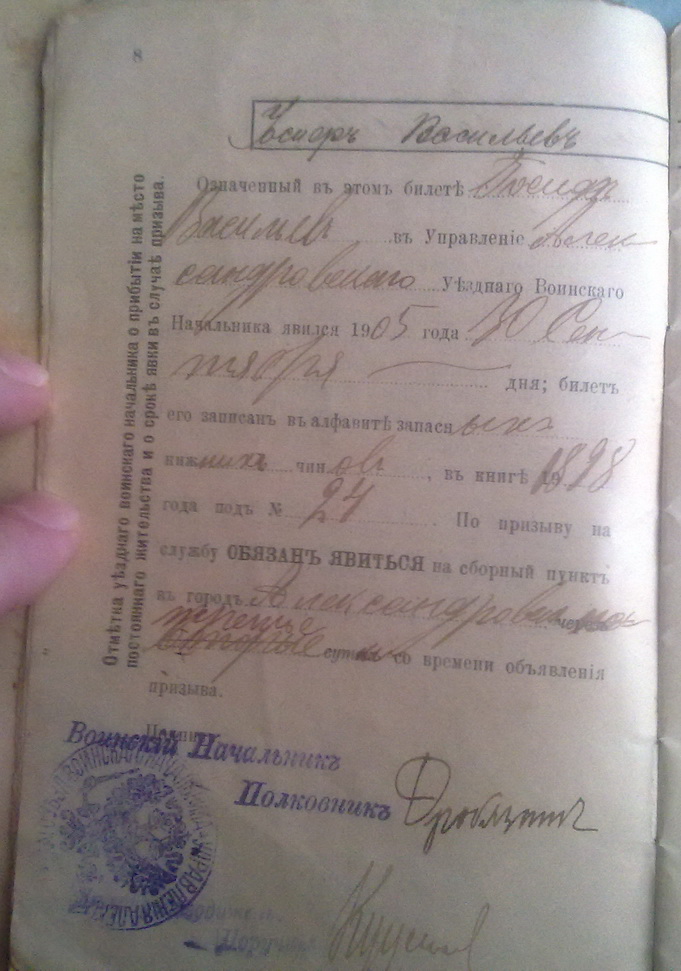 8
Васильевъ
Означенный въ этомъ билетѣ
Васильевъ въ Управленіе Алек
сандровскаго Уѣзднаго Воинскаго
Начальника явился 1905 года 30 Сен
тября дня; билетъ
его записанъ въ алфавитѣ запасныхъ
нижнихъ чиновъ, въ книгѣ 1898
года подъ № 24. По призыву на
службу ОБЯЗАНЪ ЯВИТЬСЯ на сборный пунктъ
въ городъ Александровскъ
третьи
сутки со времени объявленія
призыва.
Воинскій Начальникъ
Полковникъ
Отмѣтка уѣзднаго воинскаго начальника о прибытіи на мѣсто
постояннаго жительства и о срокѣ явки въ случаѣ призыва.